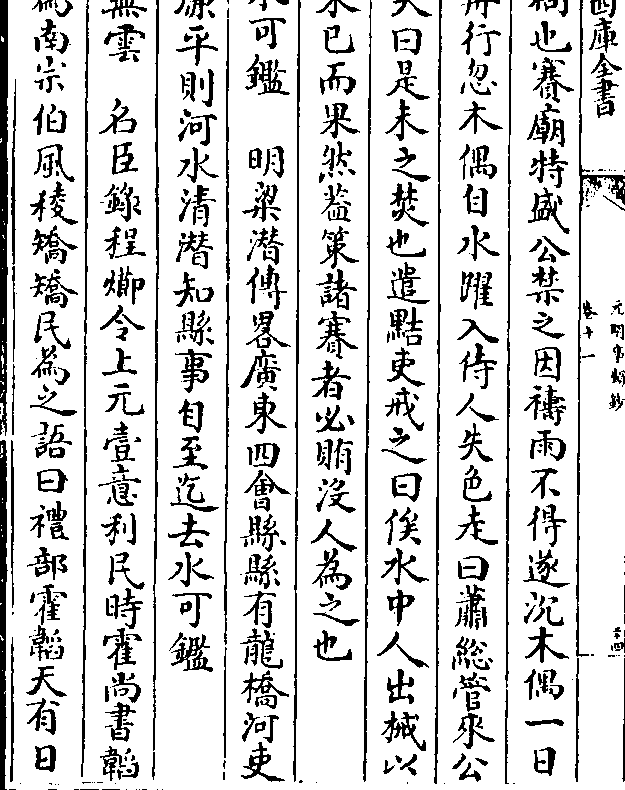 四庫全書
元明事類鈔
卷十一
祠也賽廟特盛公禁之因禱雨不得遂沉木偶一日
舟行忽木偶自水躍入侍人失色走曰蕭總管來公
笑曰是未之焚也遣黠吏戒之曰俟水中人出械以
來已而果然葢策諸賽者必賄没人為之也
水可鑑　明梁潛傳畧廣東四會縣縣有龍橋河吏
廉平則河水清潛知縣事自至迄去水可鑑
無雲　名臣錄程𤏡令上元壹意利民時霍尚書韜
為南宗伯風稜矯矯民為之語曰禮部霍韜天有日